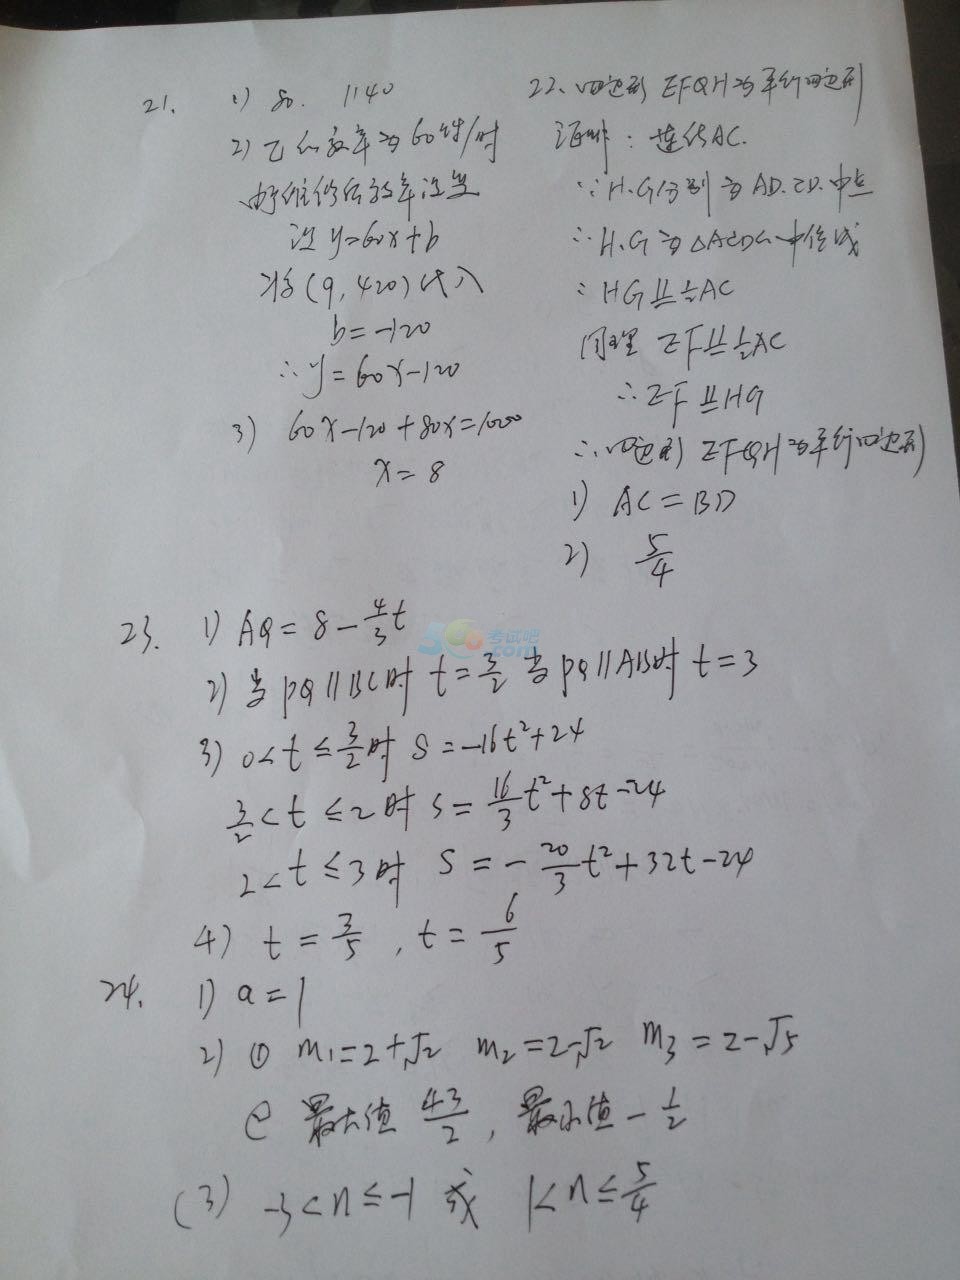 21. 1) 80. 1140
2) 乙的效率为60件/时
好维修后效率没变
设 y=60x+b
将(9, 420)代入
b=-120
∴ y=60x-120
3) 60x-120+80x=1000
x=8
22、四边形 EFGH为平行四边形
证明：连结AC.
∵H.G分别为AD.CD.中点
∴H.G为△ACD的中位线
∴HG⫽½AC
同理 EF⫽½AC
∴EF⫽HG
∴四边形 EFGH为平行四边形
1) AC=BD
2) 5/4
23. 1) AQ=8-4/3t
考试吧
.com
2) 当PQ//BC时 t=3/2 当PQ//AB时 t=3
3) 0<t≤3/2时 S=-16t²+24
3/2<t≤2时 S=16/3t²+8t-24
2<t≤3时 S=-20/3t²+32t-24
4) t=3/5, t=6/5
24. 1) a=1
2) ① m₁=2+√2 m₂=2-√2 m₃=2-√5
② 最大值 43/2, 最小值 -1/2
(3) -3<n≤-1 或 1<n≤5/4